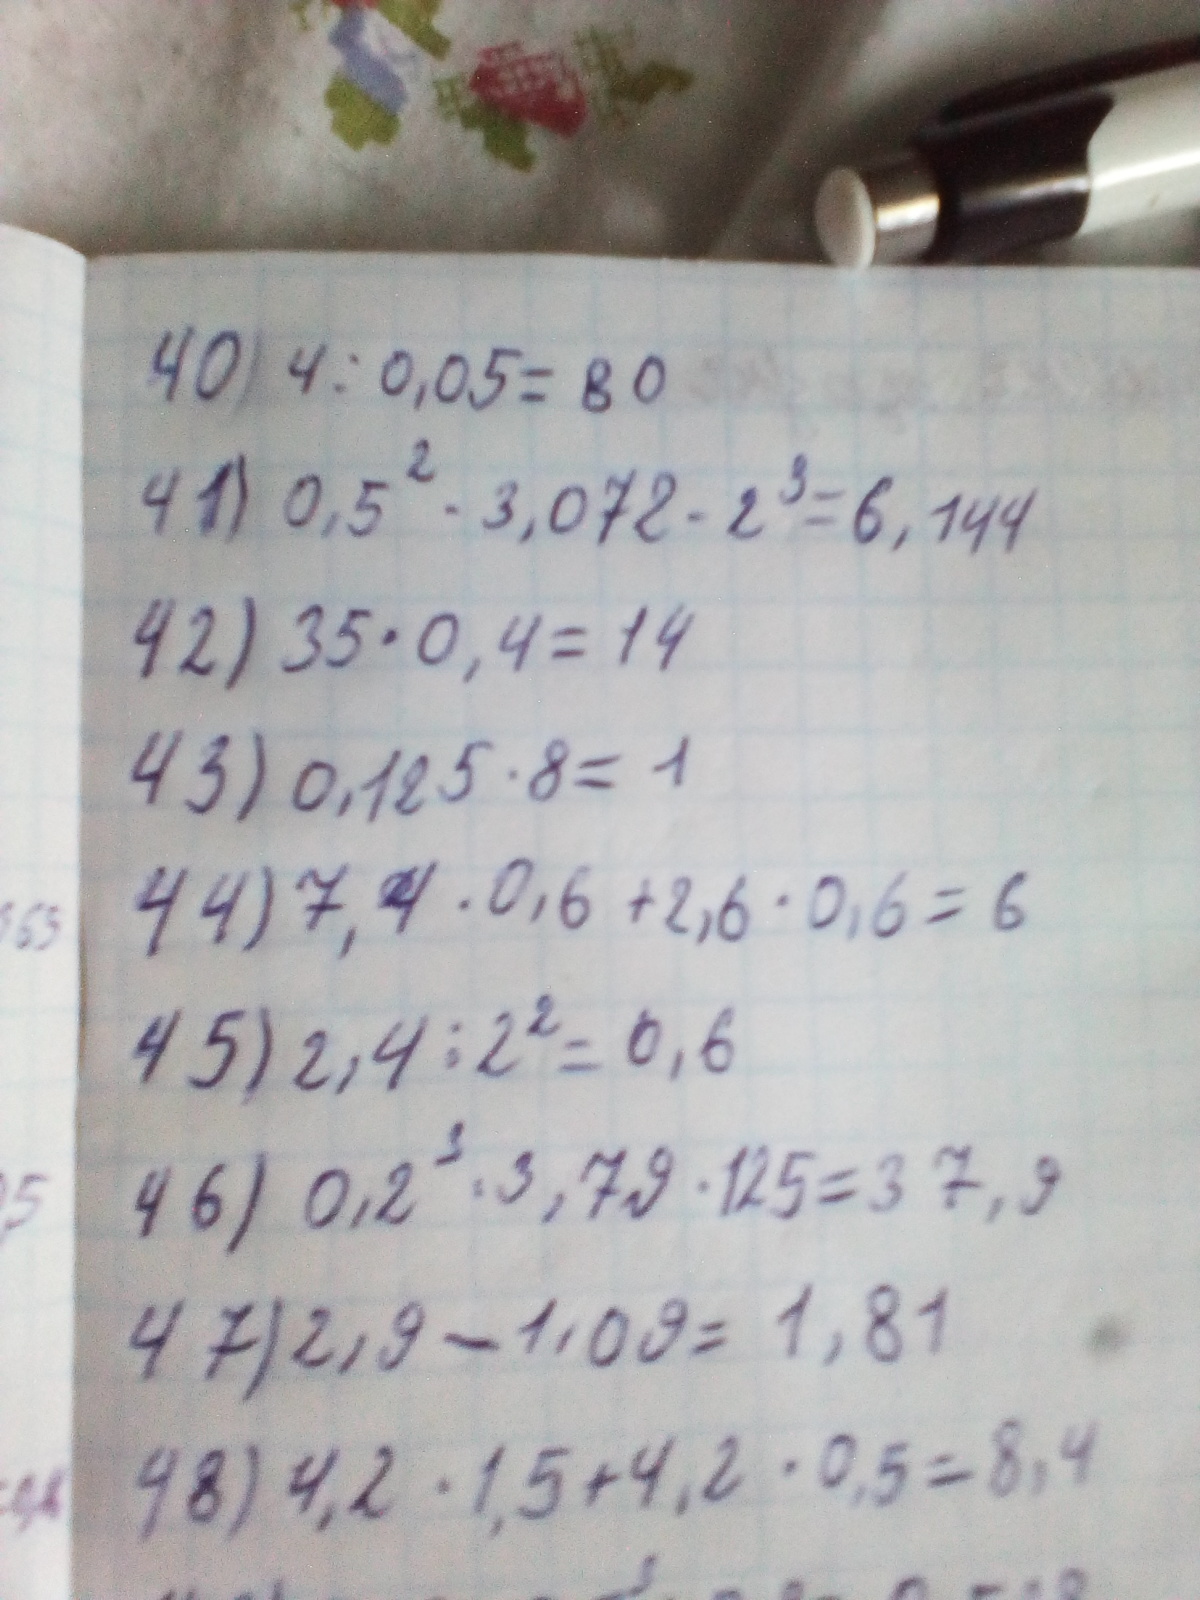 40) 4 : 0,05 = 80
41) 0,5² · 3,072 · 2³ = 6,144
42) 35 · 0,4 = 14
43) 0,125 · 8 = 1
44) 7,4 · 0,6 + 2,6 · 0,6 = 6
45) 2,4 : 2² = 0,6
46) 0,2³ · 3,79 · 125 = 37,9
47) 2,9 – 1,09 = 1,81
48) 4,2 · 1,5 + 4,2 · 0,5 = 8,4